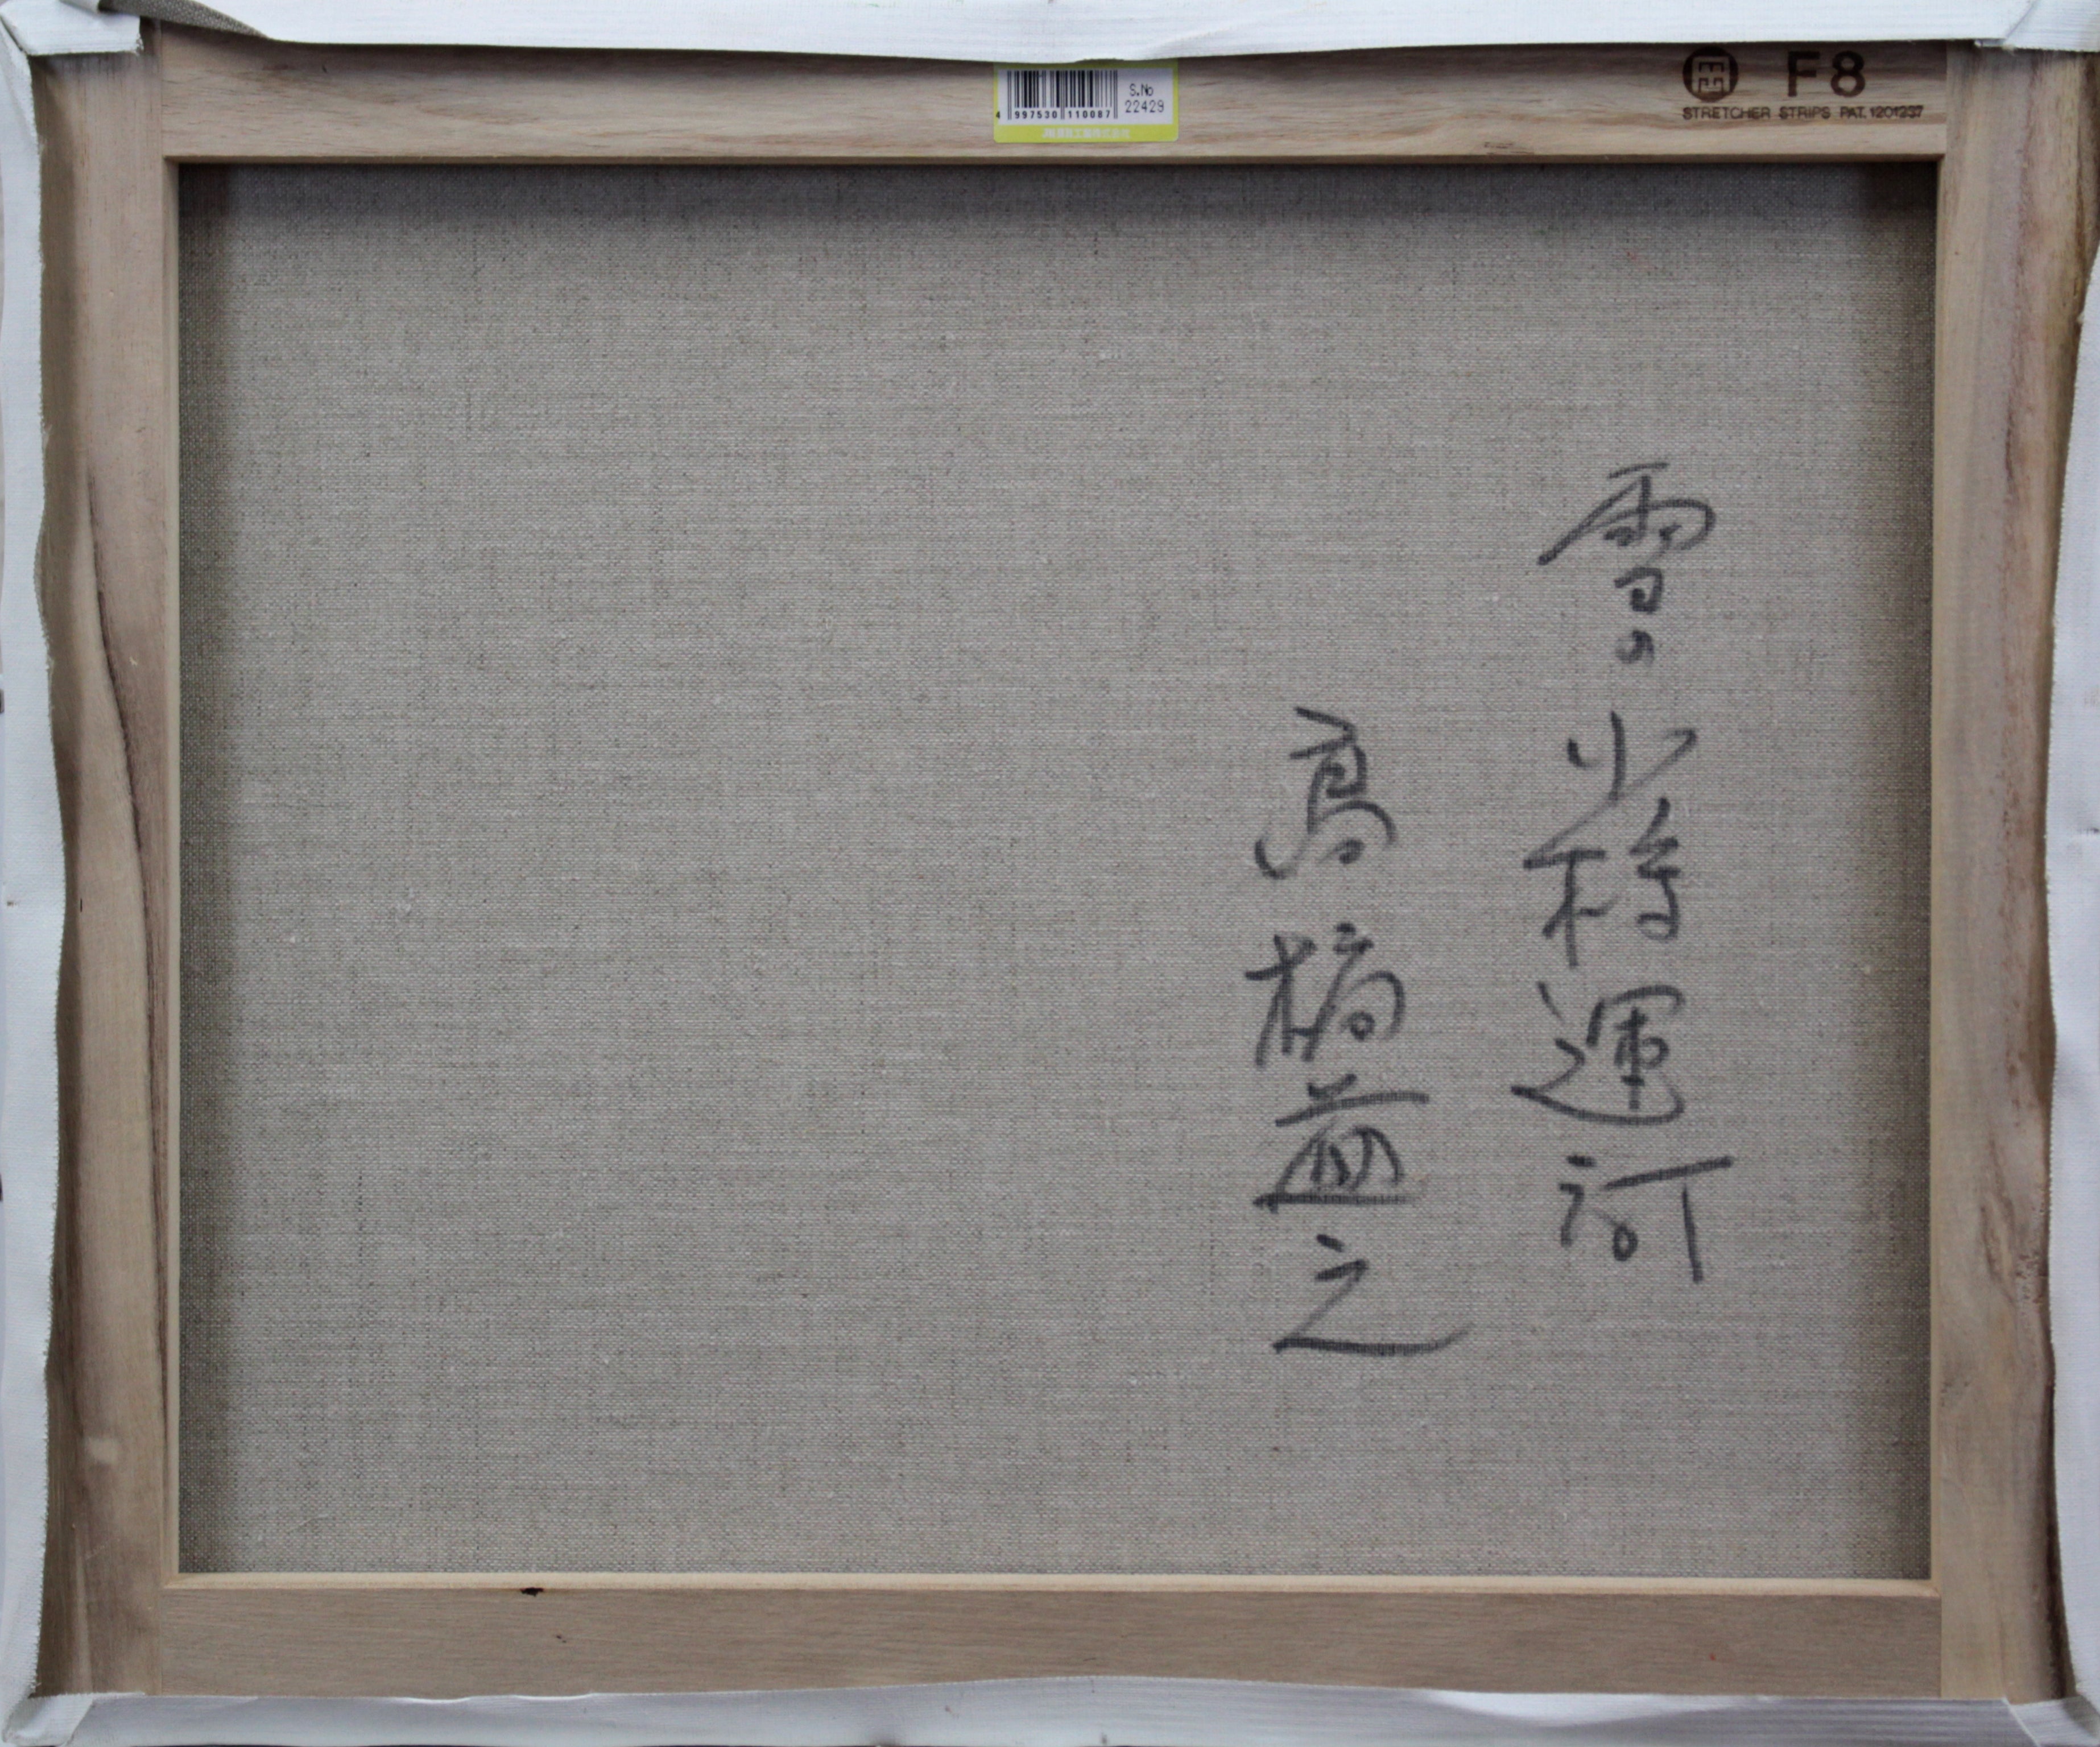 F8
STRETCHER STRIPS PAT. 1201237
S.No
22429
4 997530 110087
雪の小樽運河
高橋益之